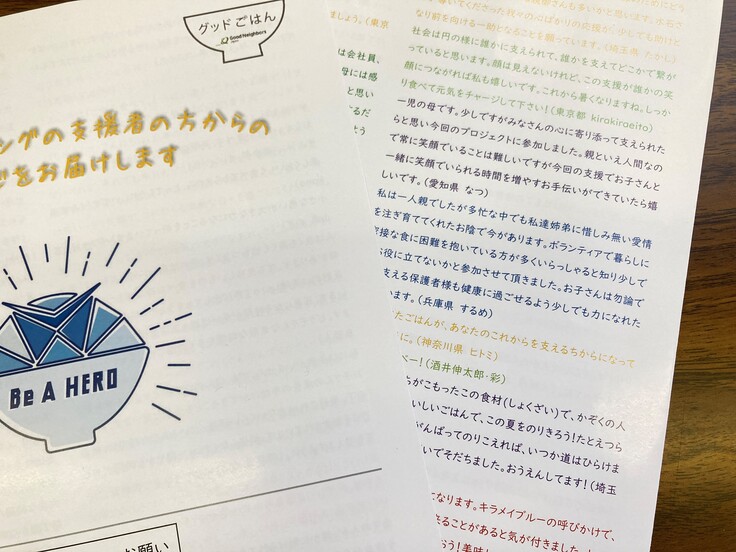 グッドごはん
Good Neighbors
ングの支援者の方からの
をお届けします
Be A HERO
お願い
ましょう。(東京
は会社員、
母には感
と思い
るだ
よう
なり前を向ける一助となることを願っています。(埼玉県 たかし)
社会は円の様に誰かに支えられて、誰かを支えてどこかで繋が
っていると思います。顔は見えないけれど、この支援が誰かの笑
顔につながれば私も嬉しいです。これから暑くなりますね。しっか
り食べて元気をチャージして下さい!(東京都 kirakiraeito)
一児の母です。少しですがみなさんの心に寄り添って支えられた
らと思い今回のプロジェクトに参加しました。親といえ人間なの
で常に笑顔でいることは難しいですが今回の支援でお子さんと
一緒に笑顔でいられる時間を増やすお手伝いができていたら嬉
しいです。(愛知県 なつ)
私は一人親でしたが多忙な中でも私達姉弟に惜しみ無い愛情
を注ぎ育ててくれたお陰で今があります。ボランティアで暮らしに
接な食に困難を抱いている方が多くいらっしゃると知り少しで
役に立てないかと参加させて頂きました。お子さんは勿論で
支える保護者様も健康に過ごせるよう少しでも力になれた
います。(兵庫県 するめ)
たごはんが、あなたのこれからを支えるちからになって
に。(神奈川県 ヒトミ)
べー!(酒井伸太郎・彩)
ちがこもったこの食材(しょくざい)で、かぞくの人
いしいごはんで、この夏をのりきろう!たとえつら
がんばってのりこえれば、いつか道はひらけま
いでそだちました。おうえんしてます!(埼玉
になります。キラメイブルーの呼びかけで、
来ることがあると気が付きました。
おう!美味し